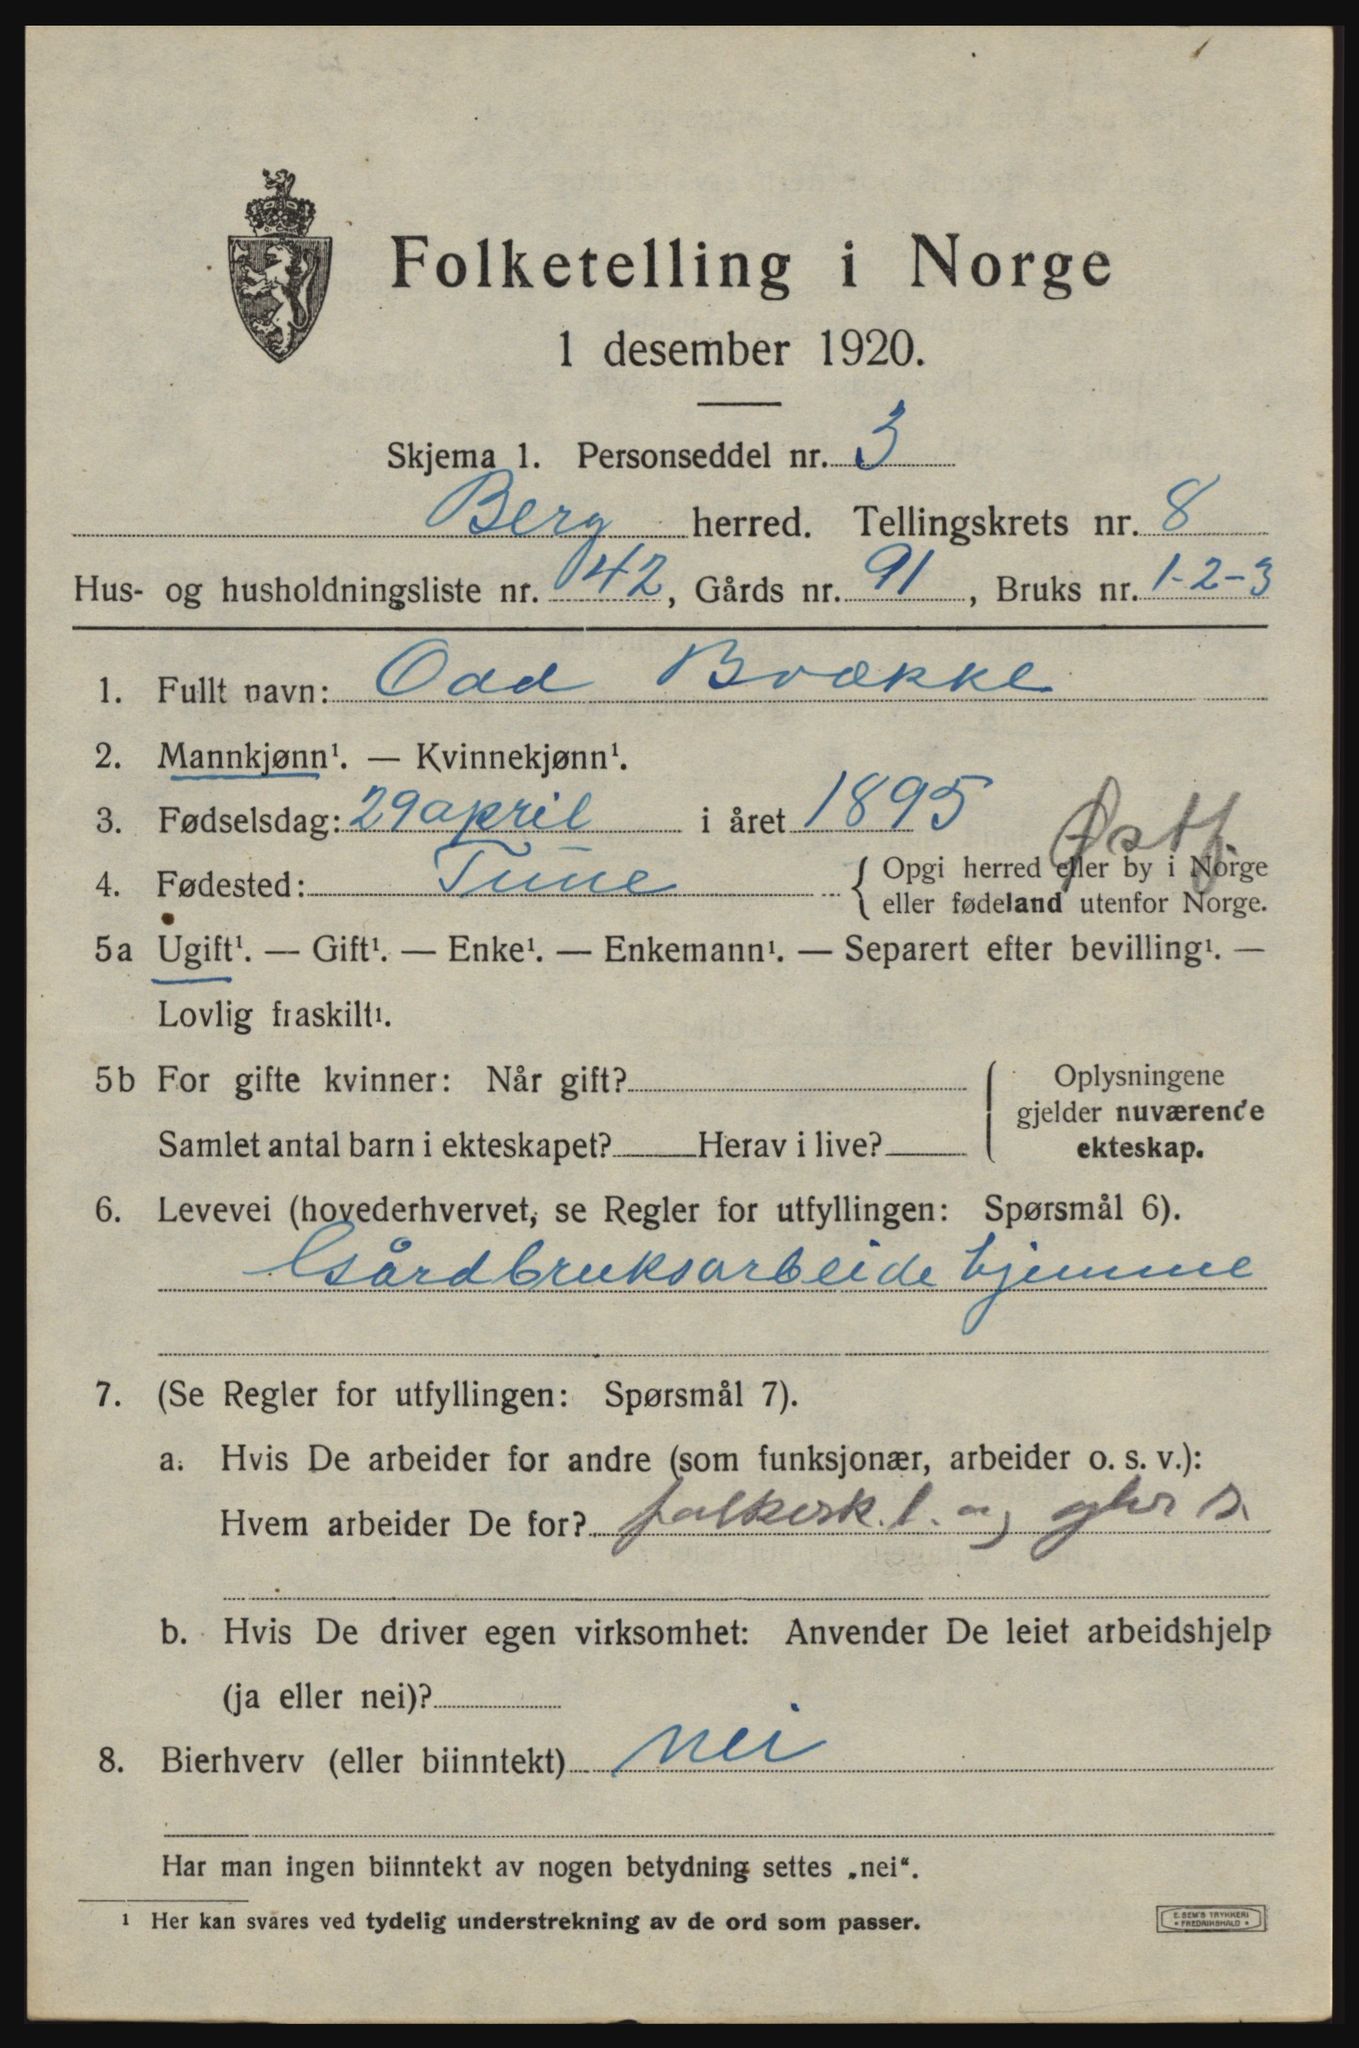 Folketelling i Norge
1 desember 1920.
Skjema 1. Personseddel nr. 3
Berg herred. Tellingskrets nr. 8
Hus- og husholdningsliste nr. 42, Gårds nr. 91, Bruks nr. 1-2-3
1. Fullt navn: Odd Brække
2. Mannkjønn¹. — Kvinnekjønn¹.
3. Fødselsdag: 29 april i året 1895
Østf.
4. Fødested: Tune { Opgi herred eller by i Norge
eller fødeland utenfor Norge.
5a Ugift¹. — Gift¹. — Enke¹. — Enkemann¹. — Separert efter bevilling¹. —
Lovlig fraskilt¹.
5b For gifte kvinner: Når gift?
Samlet antal barn i ekteskapet? Herav i live?
Oplysningene
gjelder nuværende
ekteskap.
6. Levevei (hovederhvervet, se Regler for utfyllingen: Spørsmål 6).
Gårdbruksarbeide hjemme
7. (Se Regler for utfyllingen: Spørsmål 7).
a. Hvis De arbeider for andre (som funksjonær, arbeider o. s. v.):
Hvem arbeider De for?
b. Hvis De driver egen virksomhet: Anvender De leiet arbeidshjelp
(ja eller nei)?
8. Bierhverv (eller biinntekt) nei
Har man ingen biinntekt av nogen betydning settes „nei“.
¹ Her kan svares ved tydelig understrekning av de ord som passer.
E. SEM'S TRYKKERI
• FREDRIKSHALD •